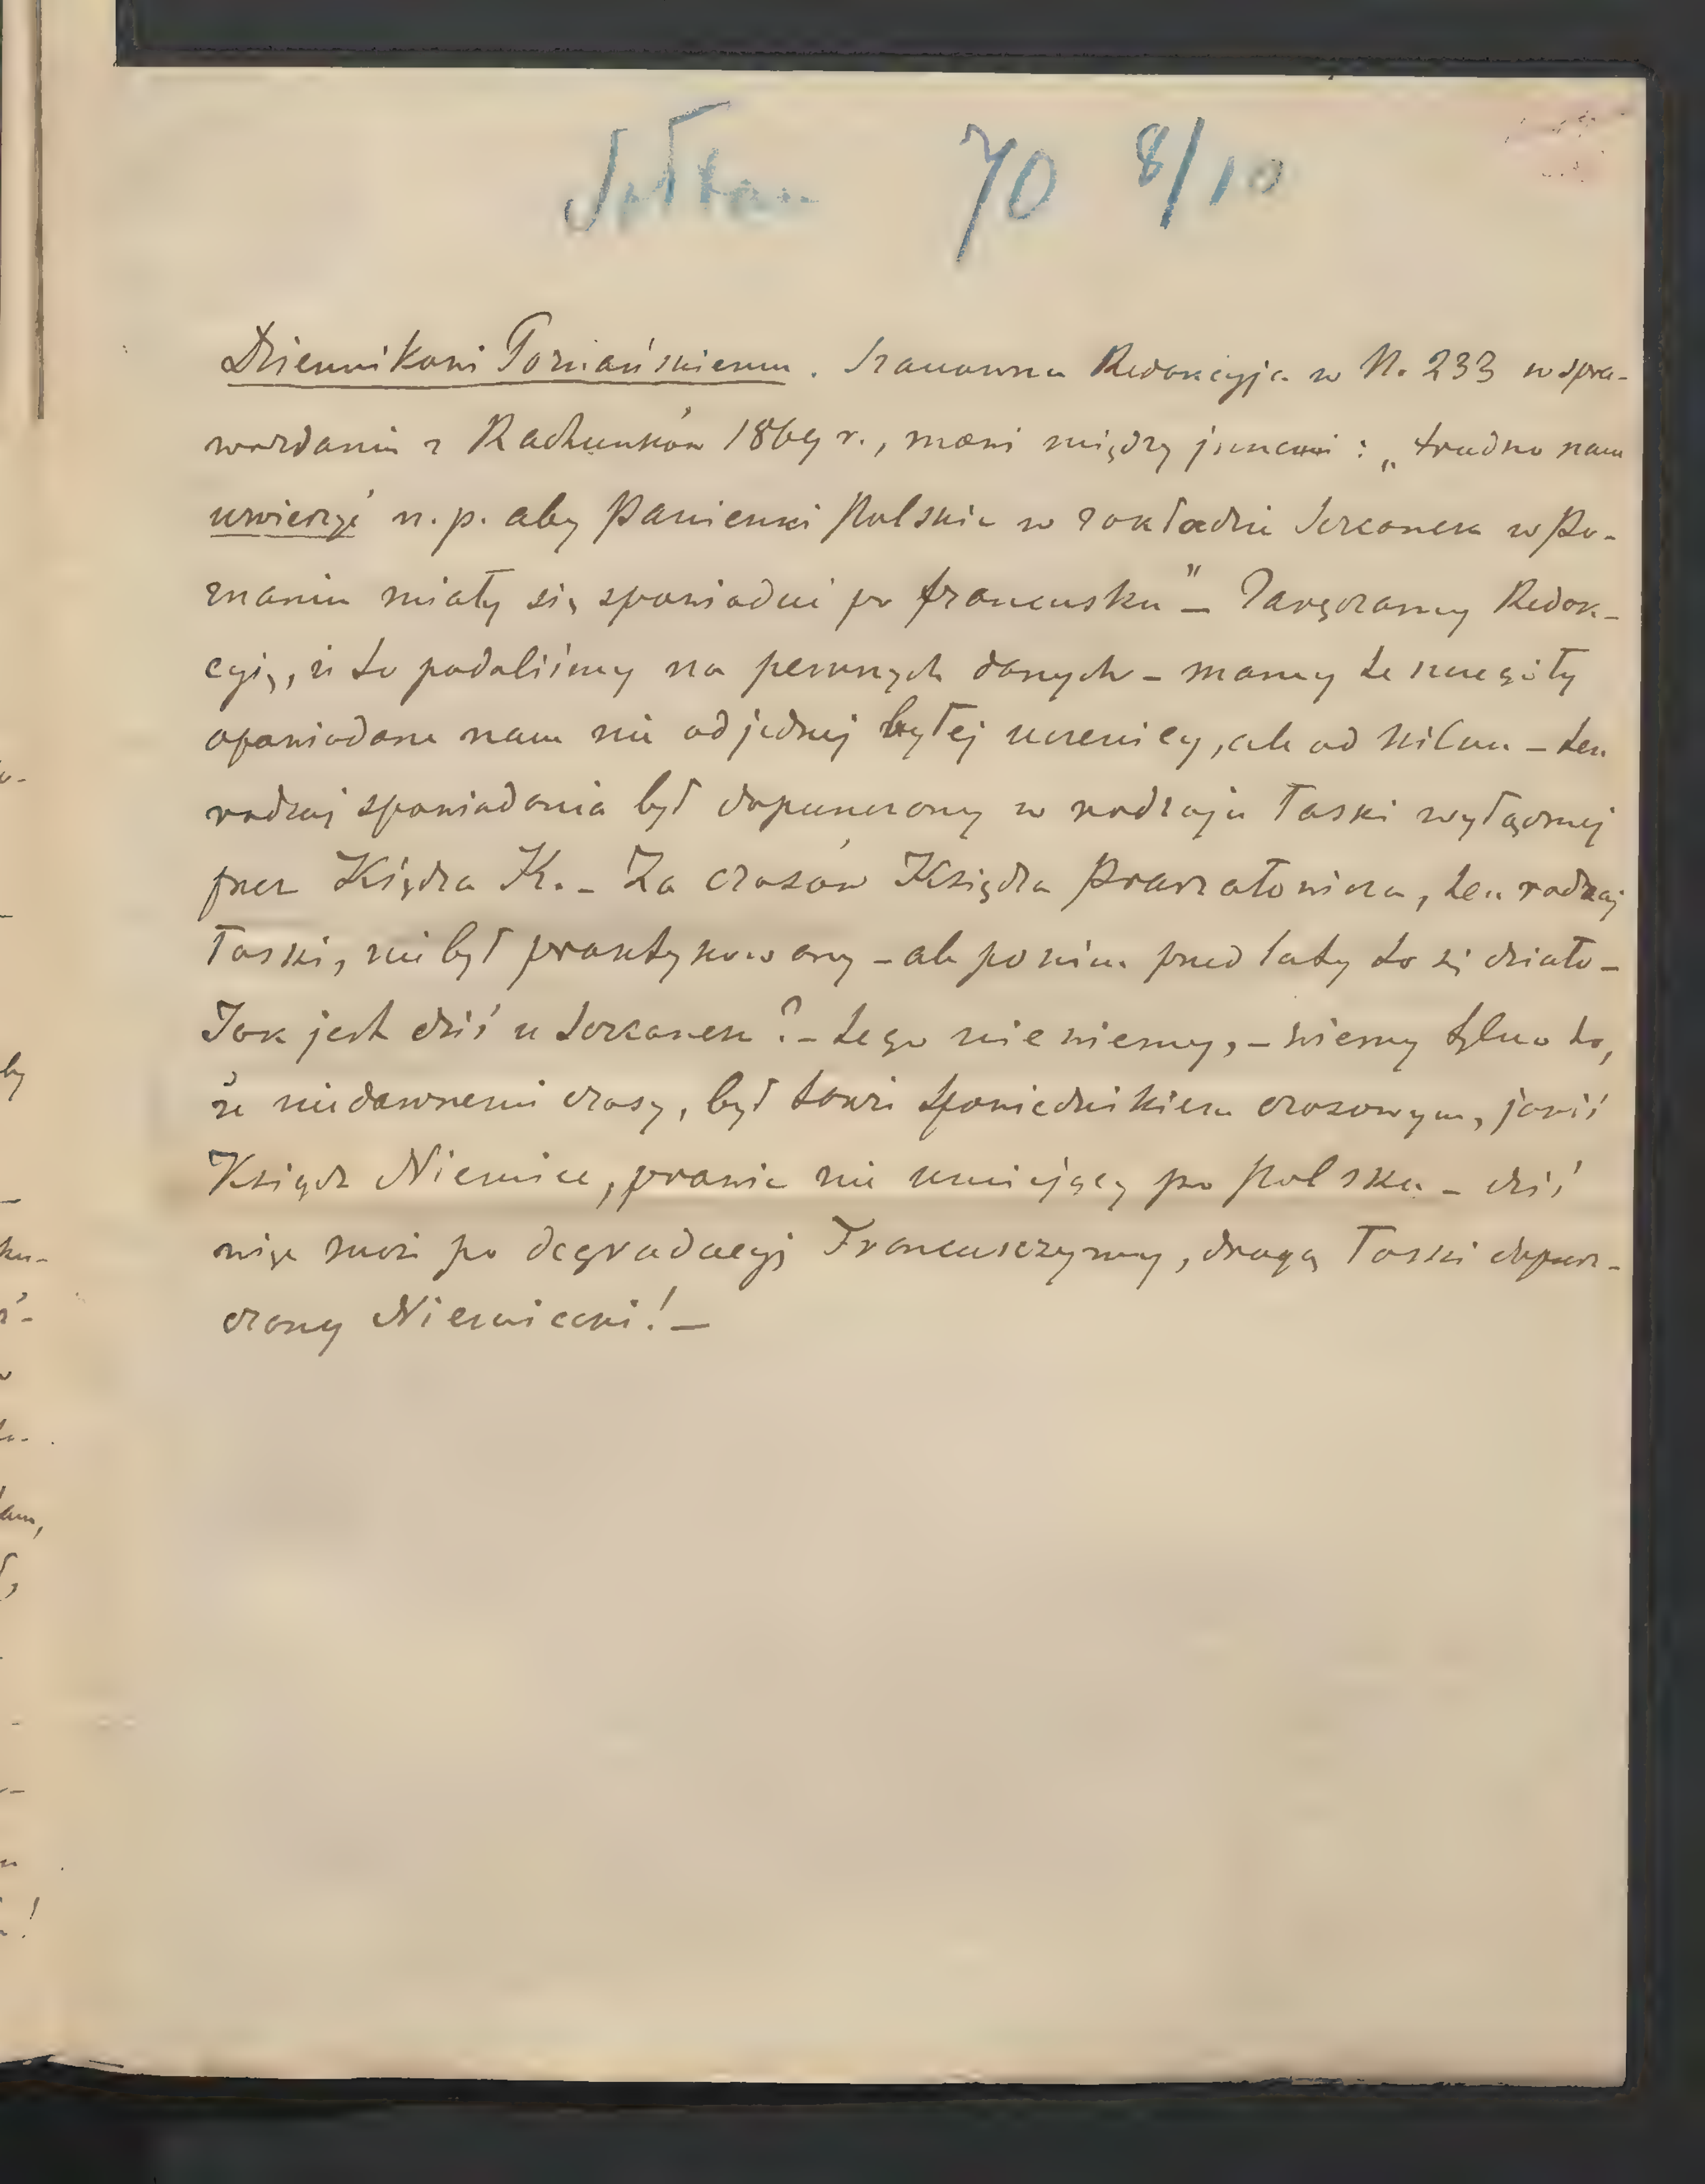 70 8/10
Dziennikowi Poznańskiemu. Szanowna Redakcyja w N. 233 w spra-
wozdaniu z Rachunków 1869 r., mówi między innemi: „trudno nam
uwierzyć n. p. aby Panienki Polskie w zakładzie Sercanek w Po-
znaniu miały się spowiadać po francusku" – Zaręczamy Redak-
cyję, iż to podaliśmy na pewnych danych – mamy te szczegóły
opowiadane nam nie od jednej byłej uczenicy, ale od kilku – ten
rodzaj spowiadania był dopuszczony w rodzaju łaski wyłącznej
przez Księdza K. – Za czasów Księdza Prawzatowicza, ten rodzaj
łaski, nie był praktykowany – ale po nim przed laty to się działo –
Jak jest dziś u Sercanek? – tego nie wiemy, – wiemy tylko to,
że niedawnemi czasy, był także spowiednikiem czasowym, jakiś
Ksiądz Niemiec, prawie nie umiejący po Polsku – dziś
więc może po degradacyj Francuszczyzny, drogą łaski dopusz-
czony Niemiecki! –